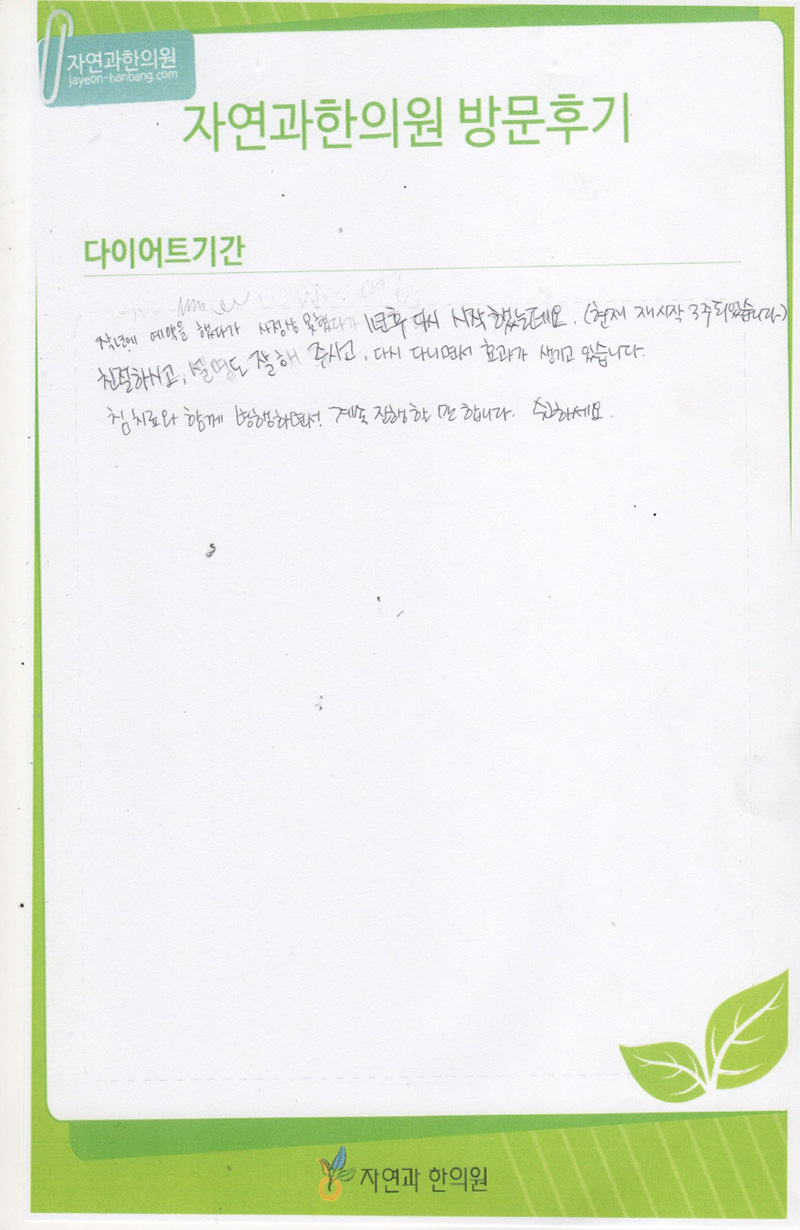 자연과한의원
jayeon-hanbang.com
자연과한의원 방문후기
다이어트기간
작년에 예약을 했다가 사정상 못했다가 1년후 다시 시작했는데요. (현재 재시작 3주되었습니다)
친절하시고, 설명도 잘해 주시고, 다시 다니면서 효과가 생기고 있습니다.
침치료와 함께 병행하면서 계속 진행할 만 합니다. 하세요.
자연과 한의원